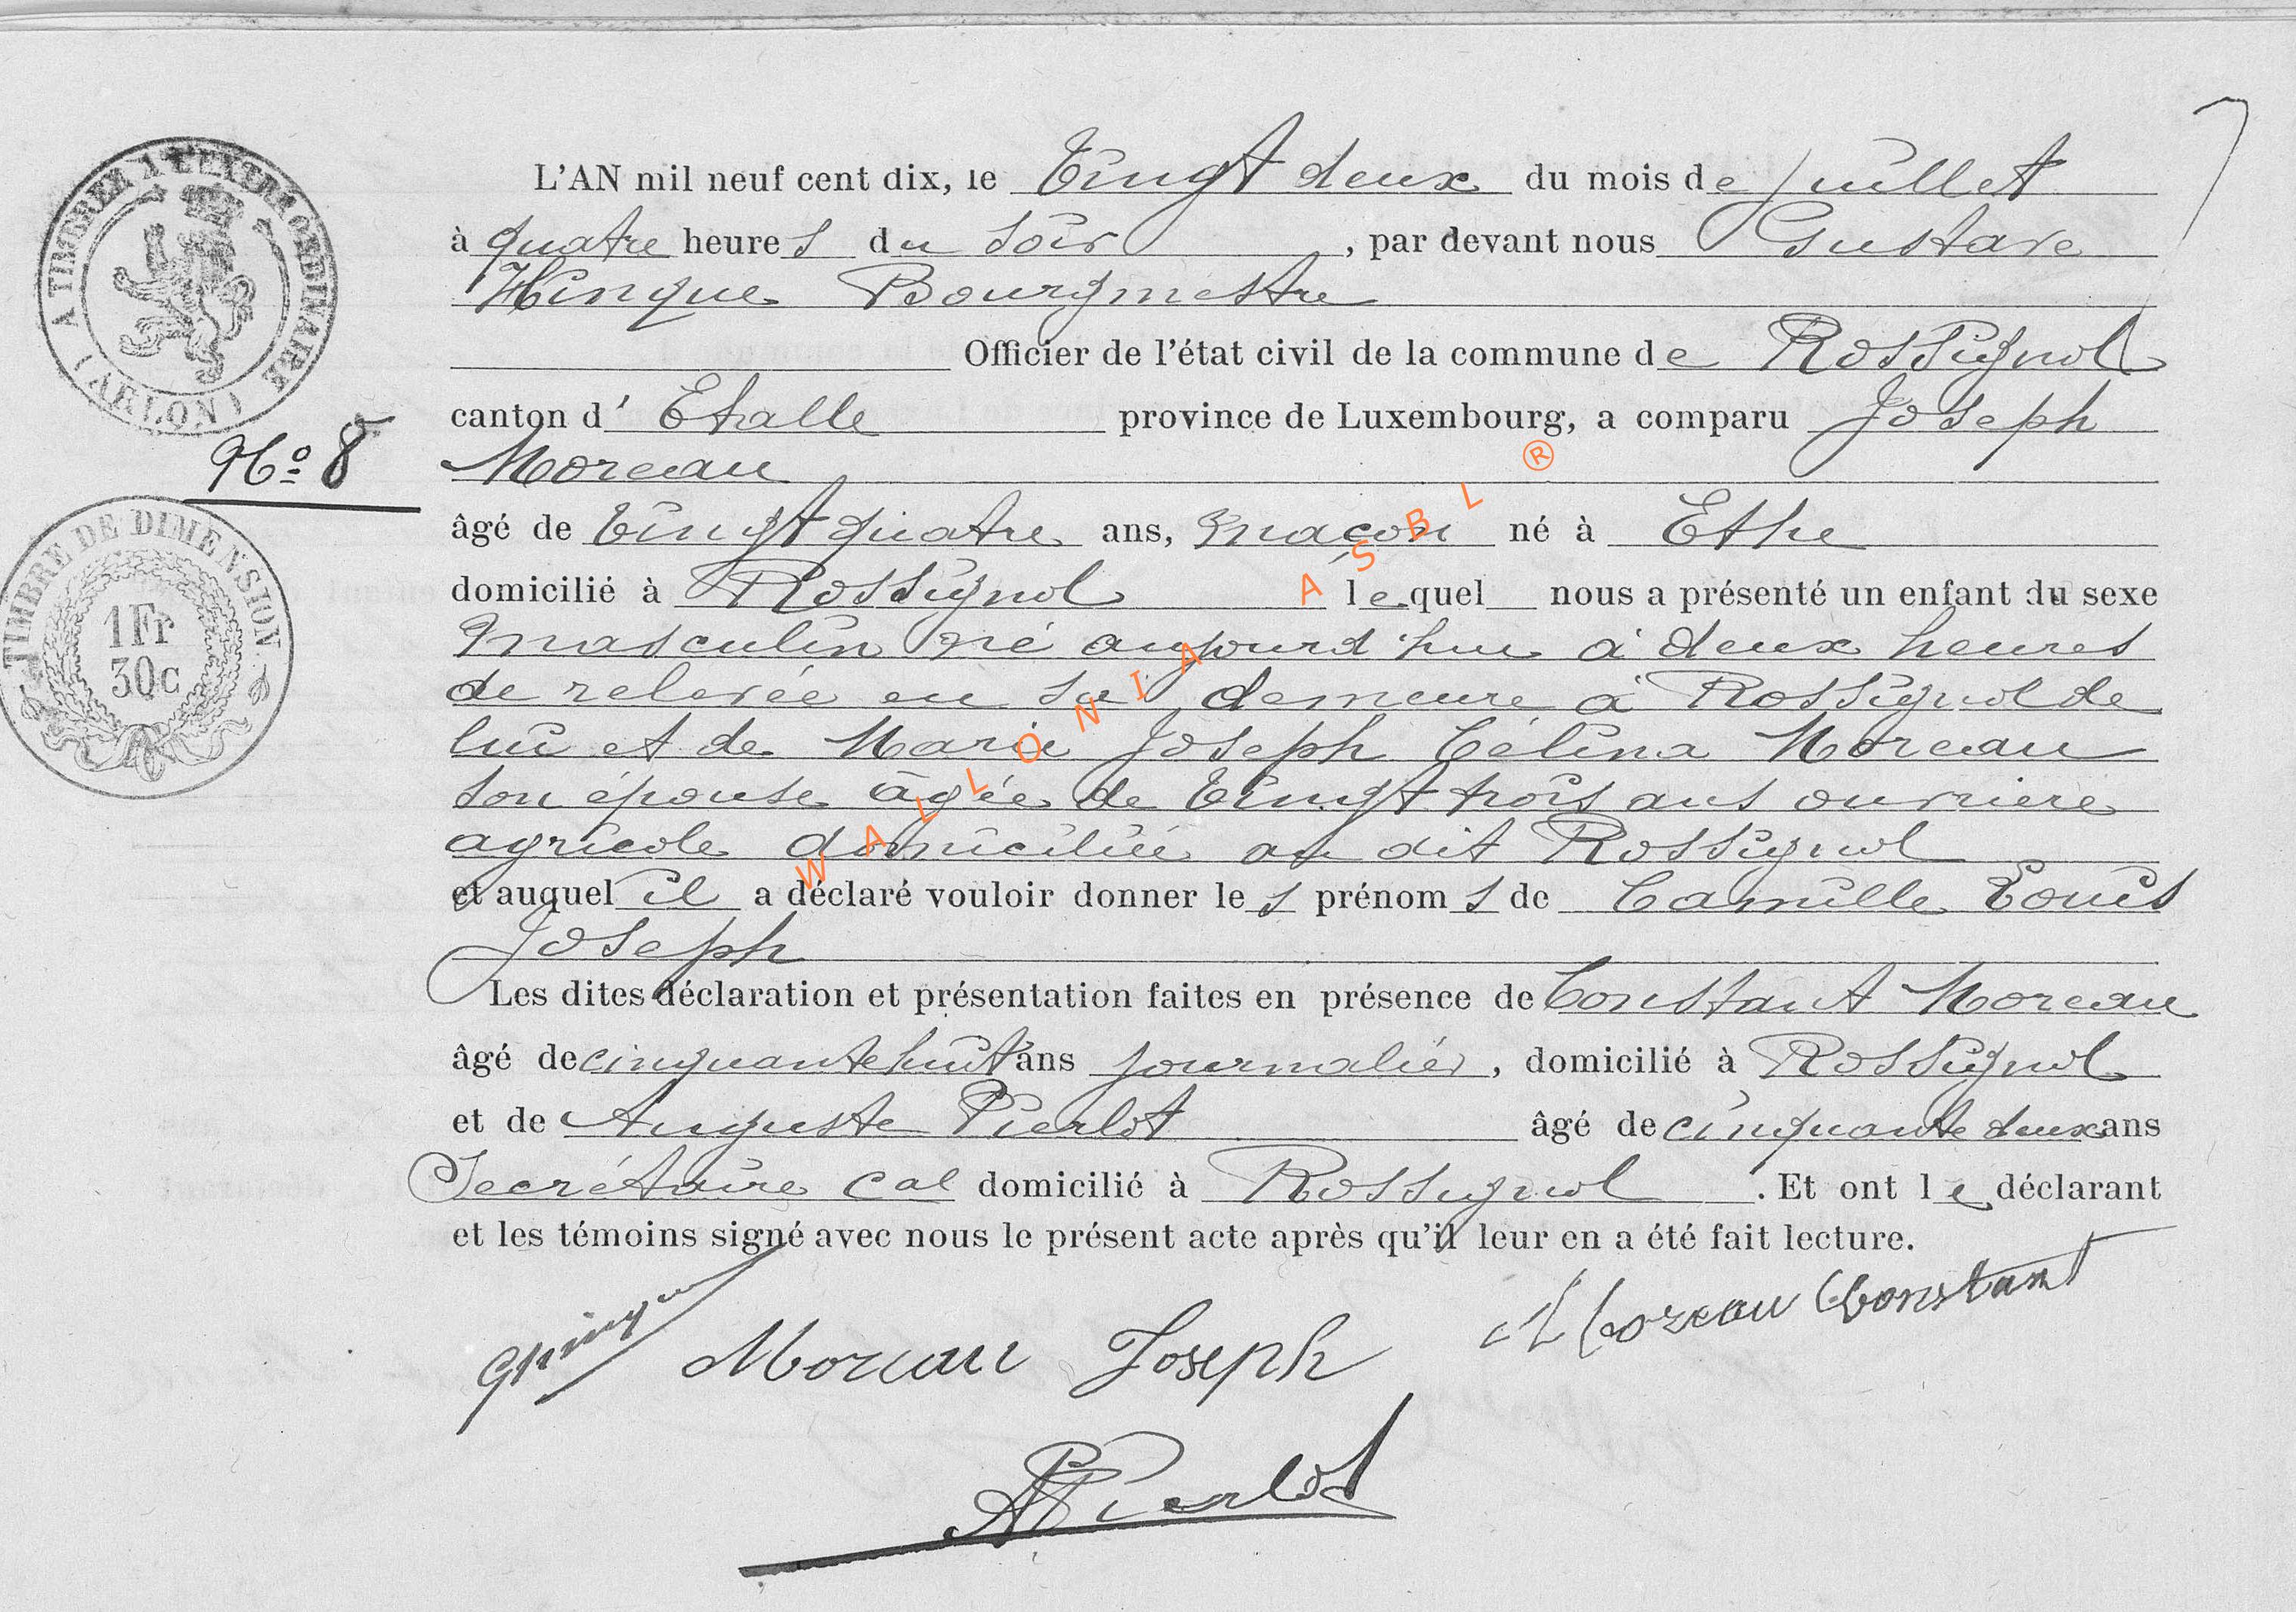 L'AN mil neuf cent dix, le Vingt deux du mois de juillet
à quatre heures du soir, par devant nous Gustave
Hinque Bourgmestre
Officier de l'état civil de la commune de Rossignol
canton d' Etalle province de Luxembourg, a comparu Joseph
Moreau
âgé de Vingt quatre ans, maçon né à Ethe
domicilié à Rossignol lequel nous a présenté un enfant du sexe
masculin né aujourd'hui à deux heures
de relevée en sa demeure à Rossignol de
lui et de Marie Joseph Célina Moreau
son épouse âgée de Vingt trois ans ouvrière
agricole domiciliée au dit Rossignol
et auquel il a déclaré vouloir donner les prénoms de Camille Louis
Joseph
Les dites déclaration et présentation faites en présence de Constant Moreau
âgé de cinquante huit ans journalier, domicilié à Rossignol
et de Auguste Pierlot âgé de cinquante deux ans
Secrétaire cal domicilié à Rossignol. Et ont le déclarant
et les témoins signé avec nous le présent acte après qu'il leur en a été fait lecture.
GHinque Moreau Joseph Moreau Constant
APierlot
A TIMBRER A L'EXTRAORDINAIRE
(ARLON)
No 8
TIMBRE DE DIMENSION
1Fr
30c
WALLONIA ASBL ®